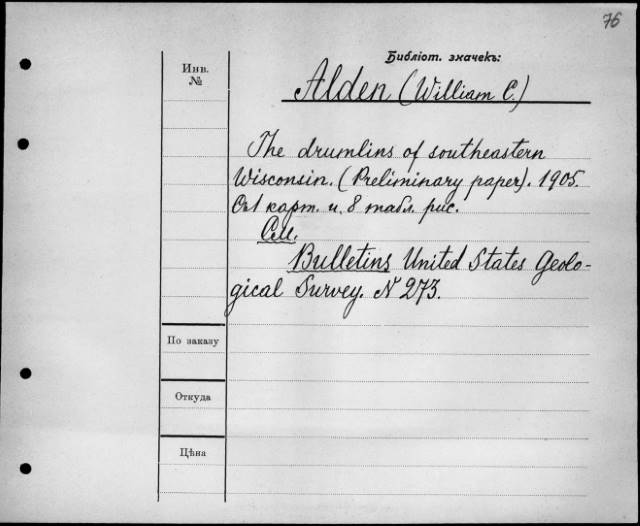 76
Библіот. значекъ:
Инв.
№
Alden (William C.)
The drumlins of southeastern
Wisconsin. (Preliminary paper). 1905.
Съ 1 карт. и 8 табл. рис.
См.
Bulletins United States Geolo-
gical Survey. N 273.
По заказу
Откуда
Цѣна